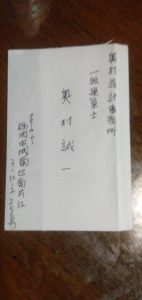 奥村設計事務所
一級建築士
奥村誠一
福岡市城南区南片江